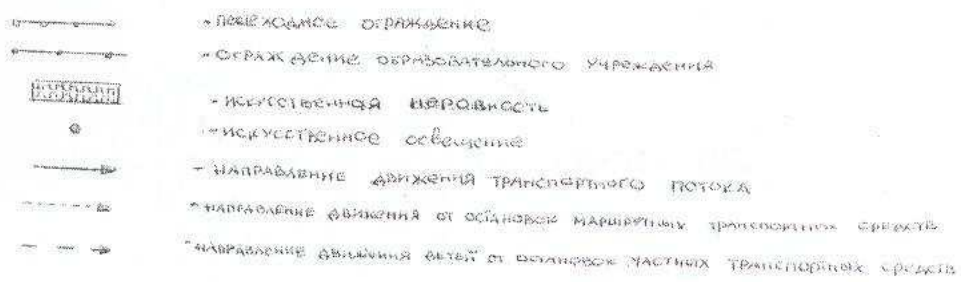 - пешеходное ограждение
- ограждение образовательного учреждения
- искусственная неровность
- искусственное освещение
- направление движения транспортного потока
- направление движения от остановок маршрутных транспортных средств
- направление движения детей от остановок частных транспортных средств